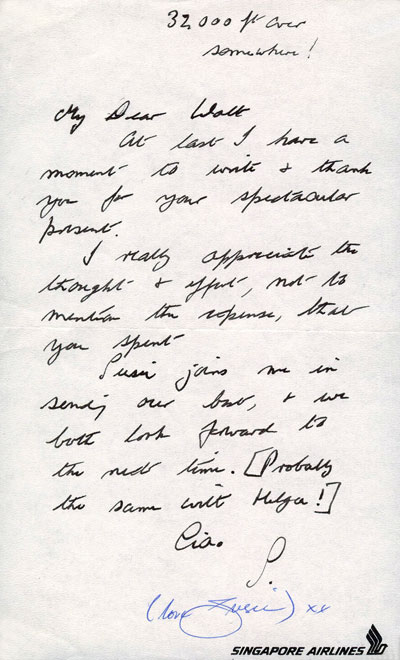 32,000 ft over
somewhere!
My Dear Walt
At last I have a
moment to write & thank
you for your spectacular
present.
I really appreciate the
thought & effort, not to
mention the expense, that
you spent
Susie joins me in
sending our best, & we
both look forward to
the next time. [Probably
the same with Helga!]
Ciao
J.
(love Susie) xx
SINGAPORE AIRLINES